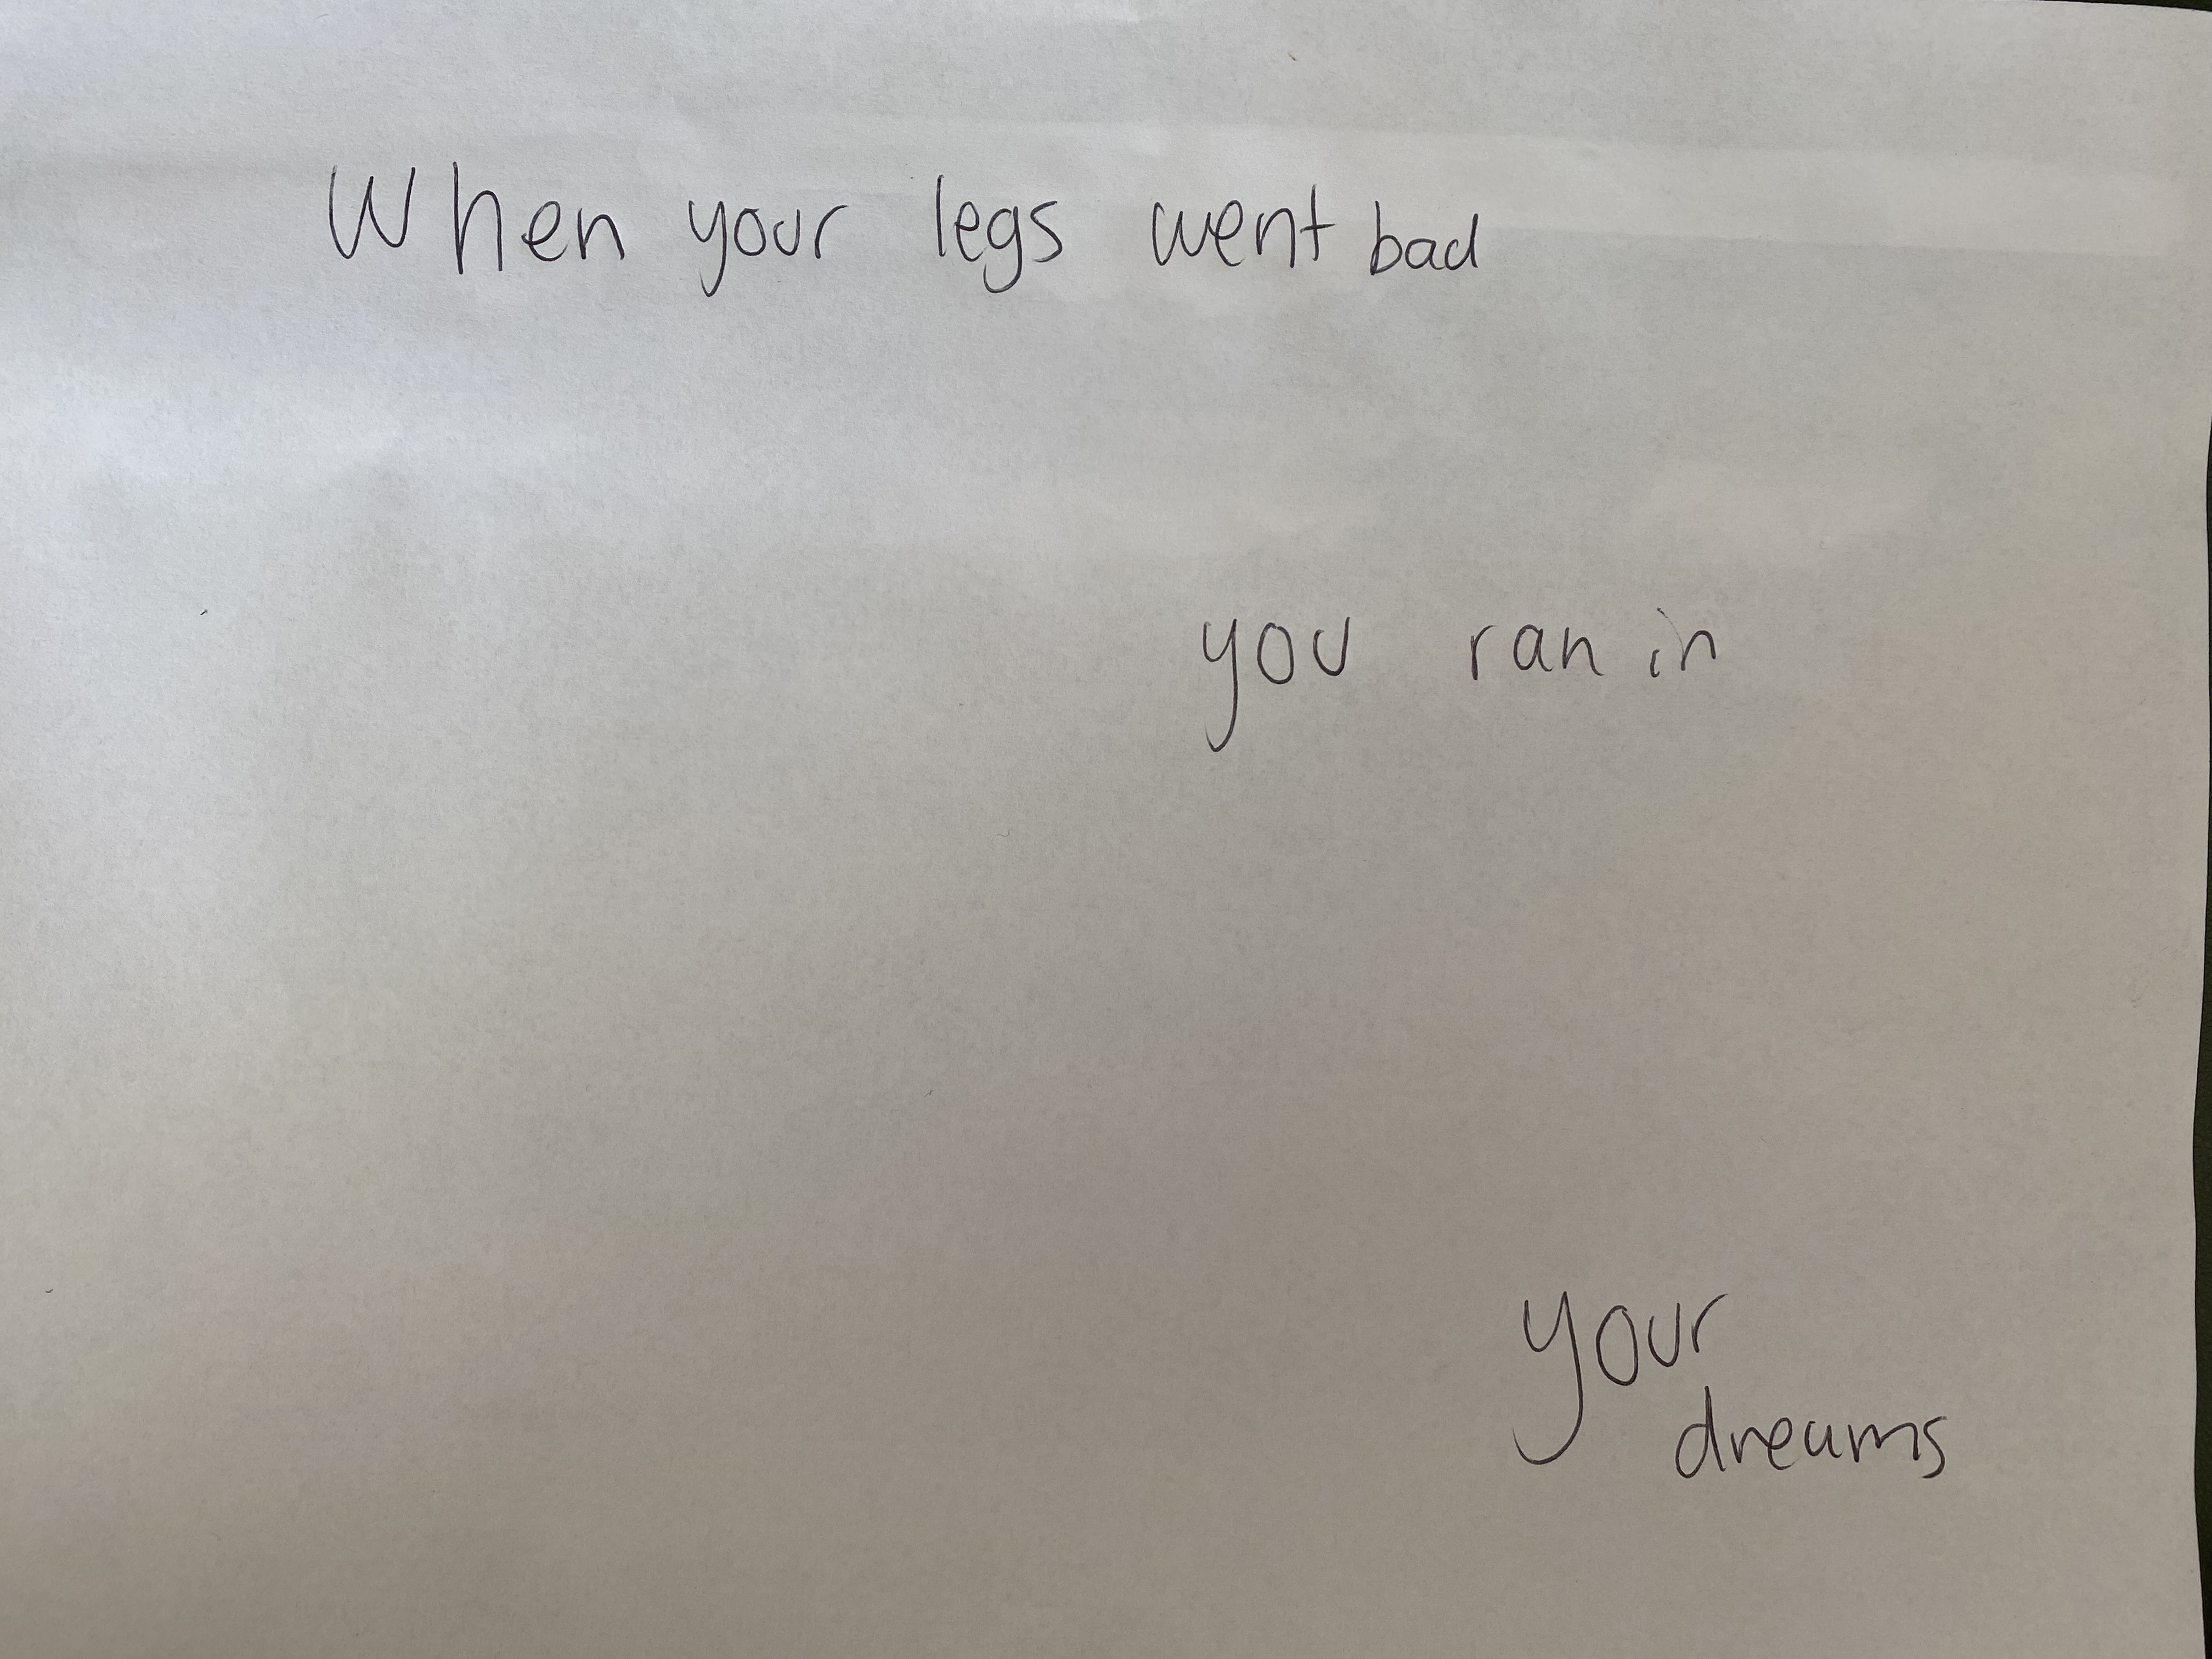 When your legs went bad
you ran in
your
dreams